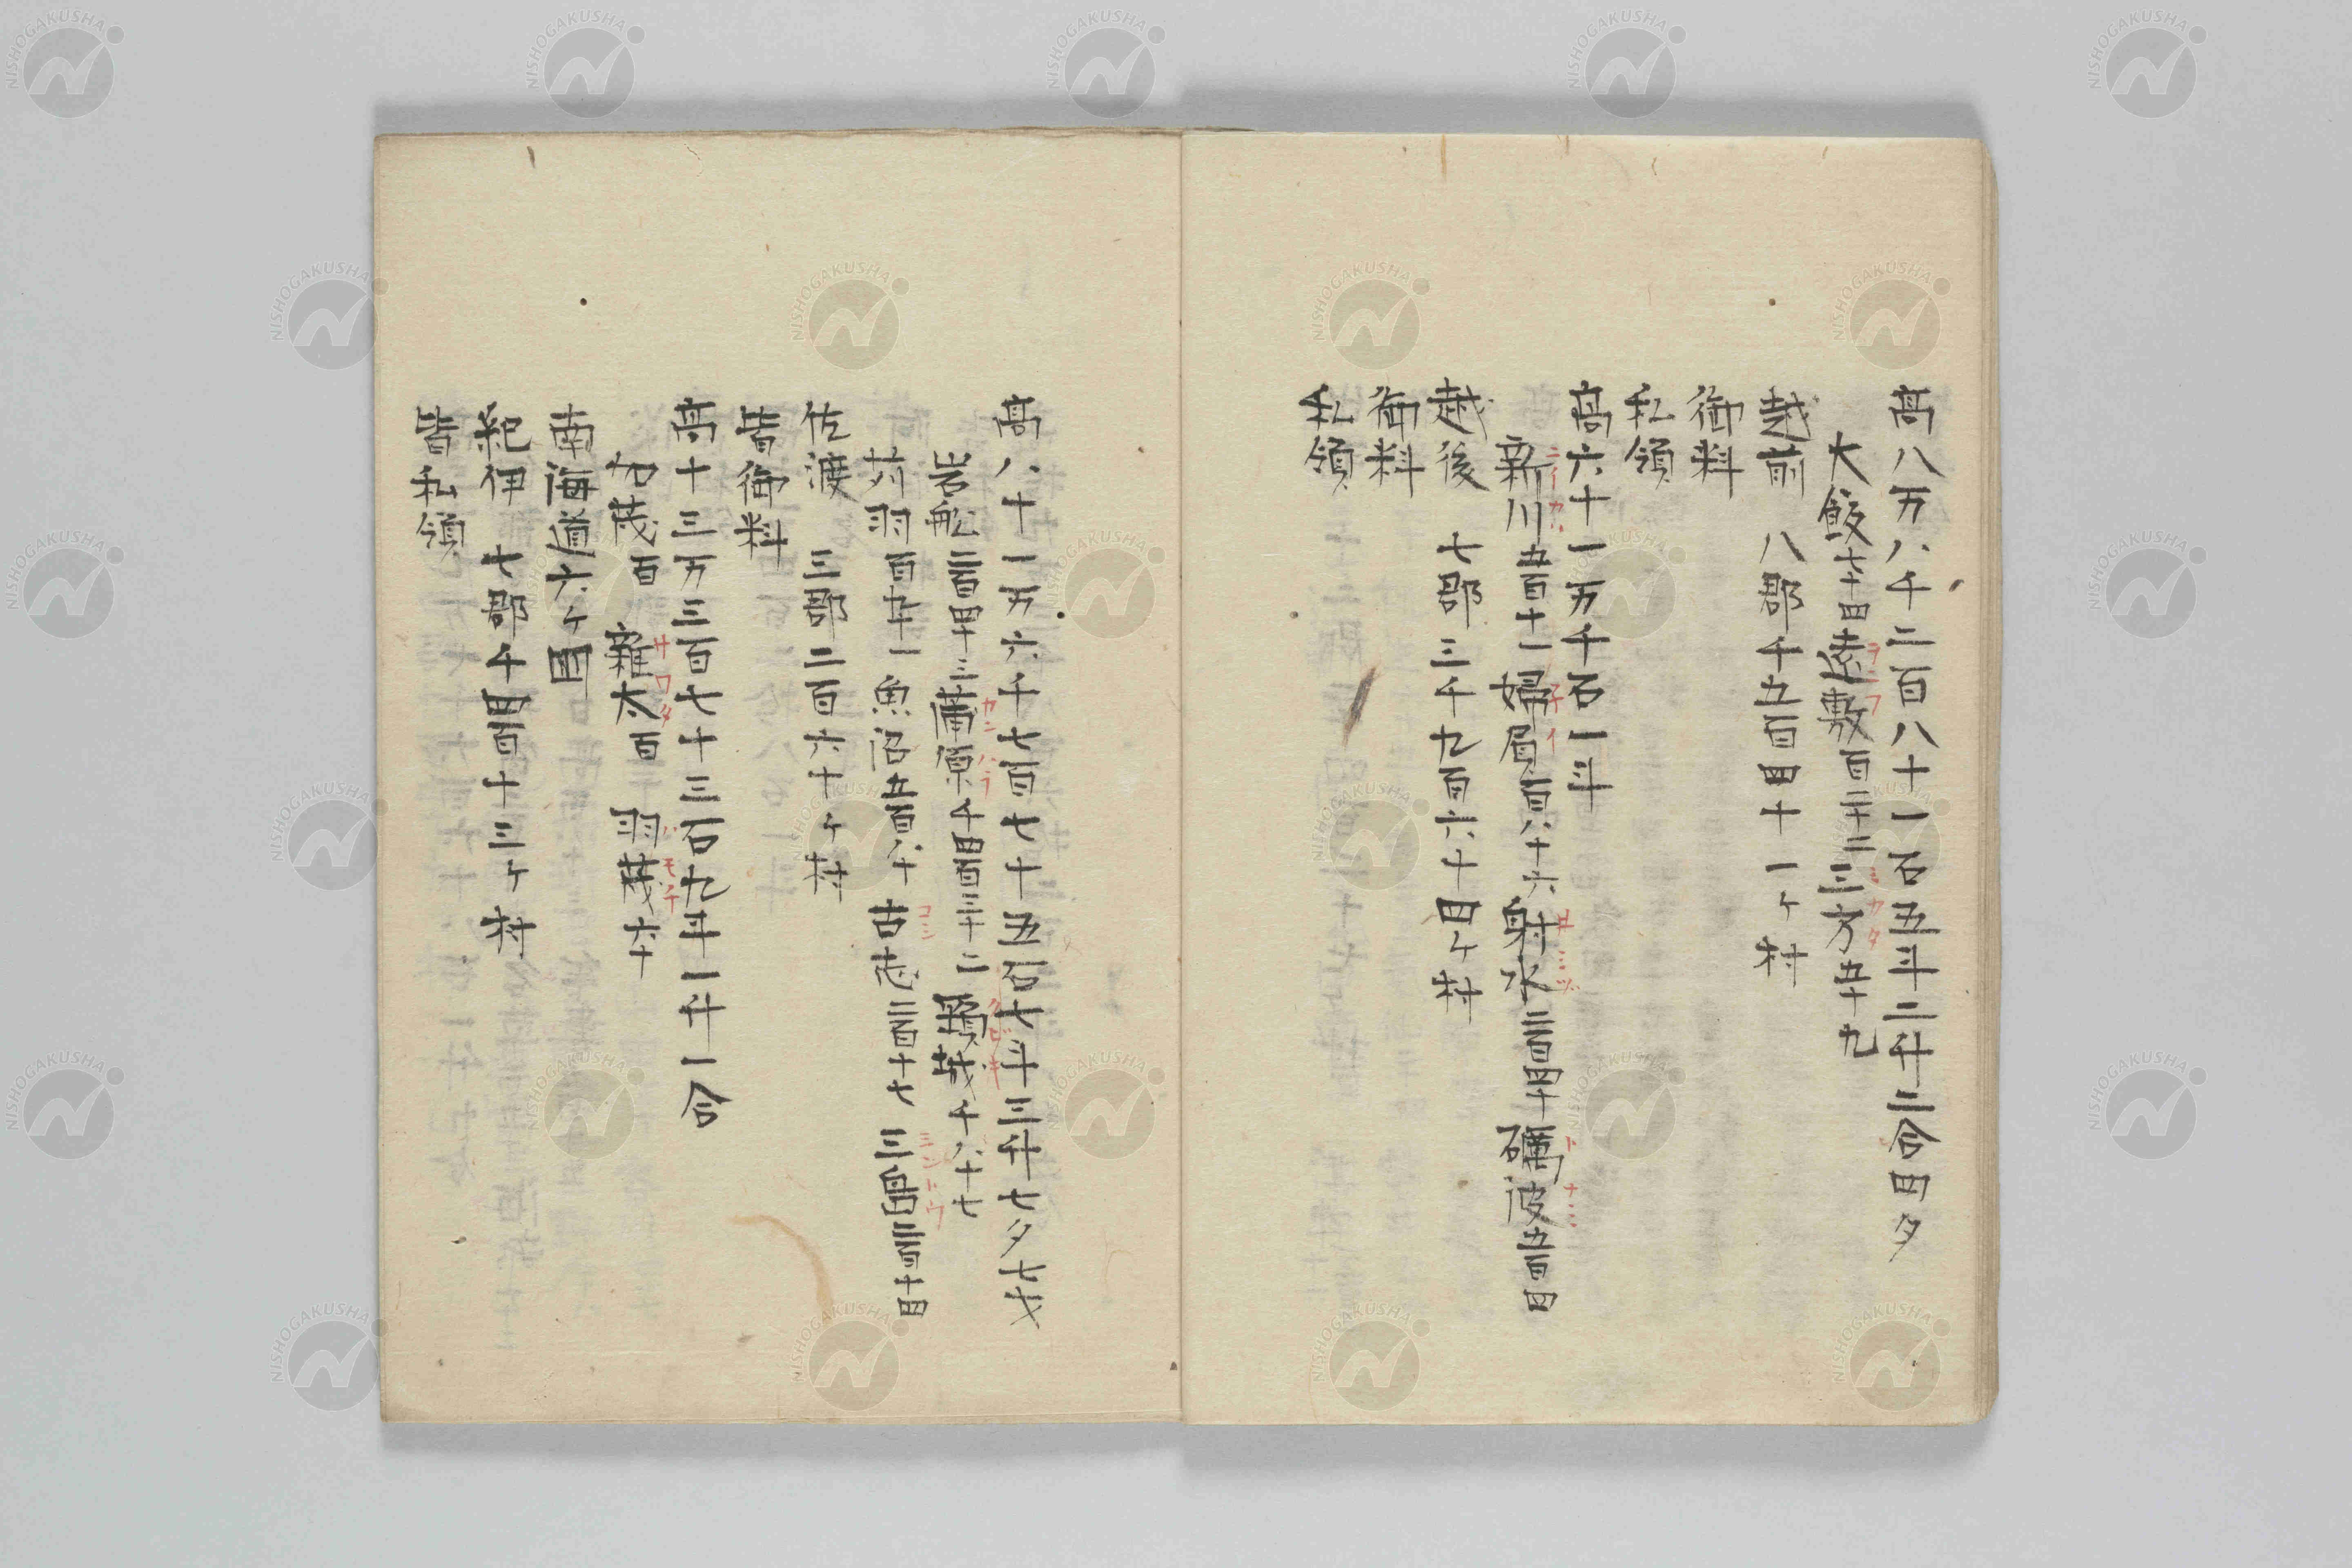 高八万八千二百八十一石五斗二升二合四夕
大飯七十四遠敷百二十二三方五十九
越前 八郡千五百四十一ヶ村
御料
私領
高六十一万千石一斗
新川五百十一婦屓二百八十六射水三百四十礪波五百四
越後 七郡三千九百六十四ヶ村
御料
私領
高八十一万六千七百七十五石七斗三升七夕七才
岩船二百四十三蒲原千四百三十二頸城千八十七
苅羽百九十一魚沼五百八十古志三百十七三島三百十四
佐渡 三郡二百六十ヶ村
皆御料
高十三万三百七十三石九斗一升一合
加茂百 雜太百 羽茂六十
南海道六ヶ国
紀伊 七郡千四百十三ヶ村
皆私領
NISHOGAKUSHA